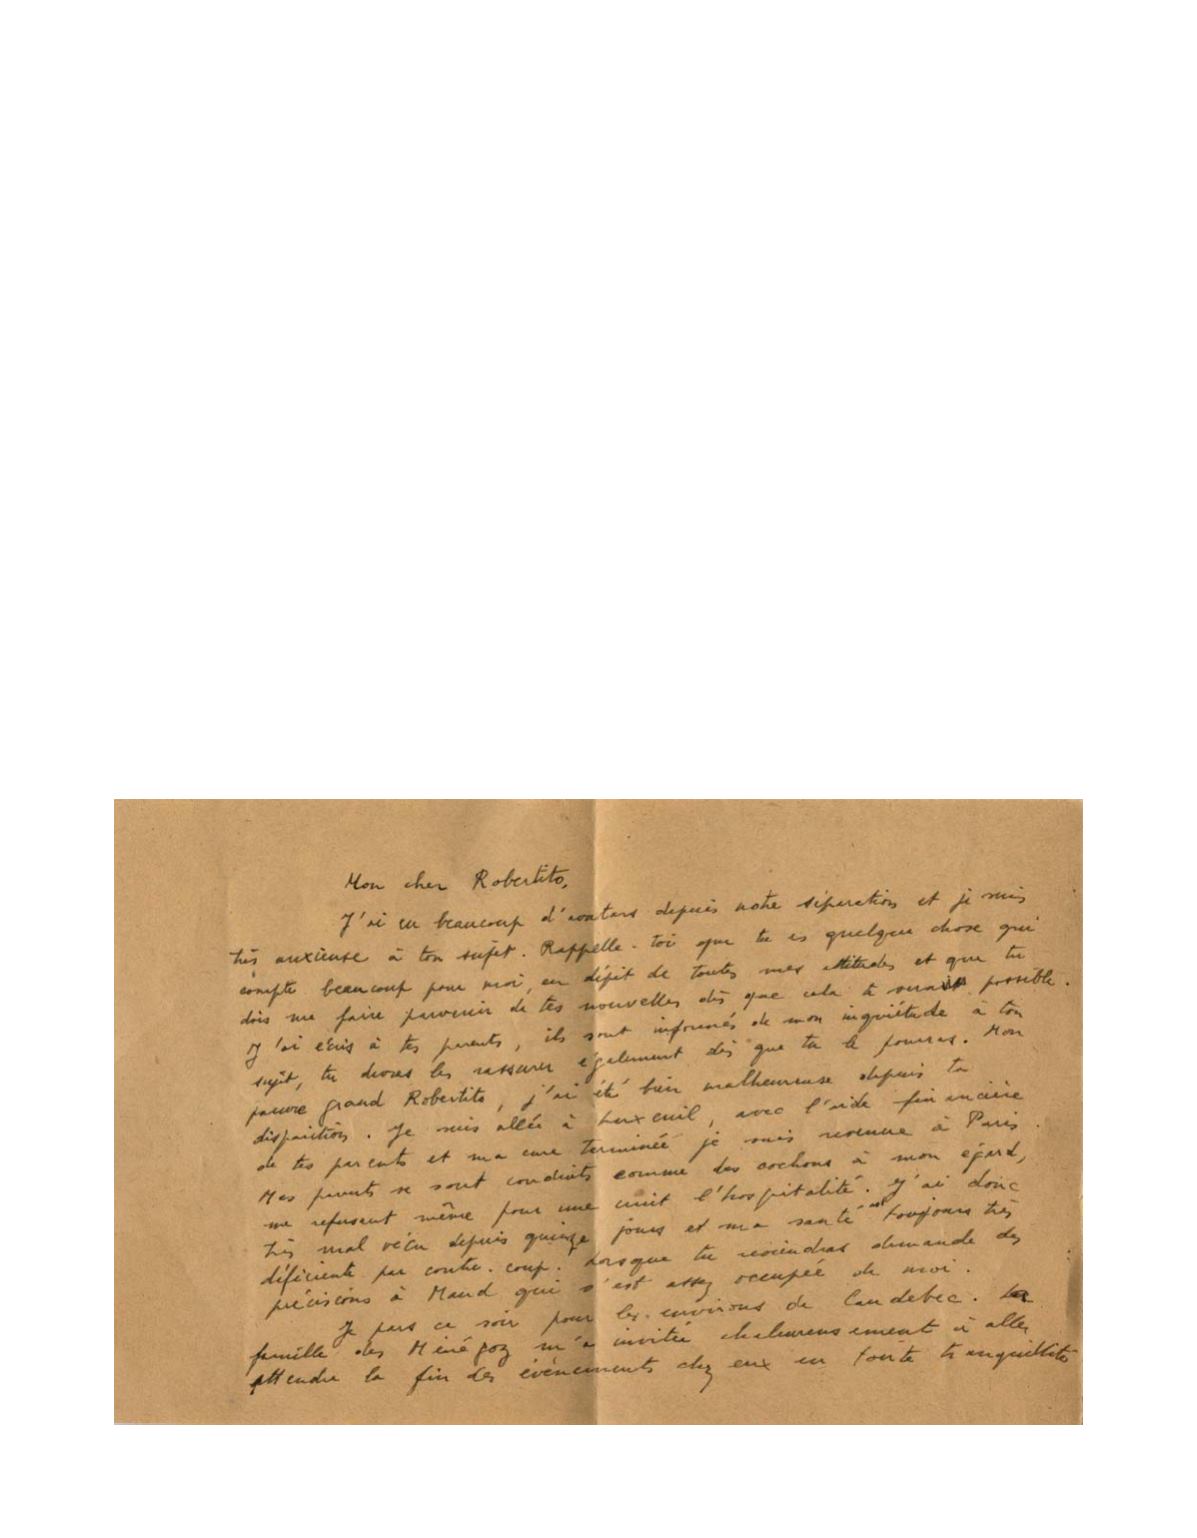 Mon cher Robertito,
J'ai eu beaucoup d'avatars depuis notre séparation et je suis
très anxieuse à ton sujet. Rappelle-toi que tu es quelque chose qui
compte beaucoup pour moi, en dépit de toutes mes attitudes et que tu
dois me faire parvenir de tes nouvelles dès que cela te sera possible.
J'ai écris à tes parents, ils sont informés de mon inquiétude à ton
sujet, tu devras les rassurer également dès que tu le pourras. Mon
pauvre grand Robertito, j'ai été bien malheureuse depuis ta
disparition. Je suis allée à Luxeuil, avec l'aide financière
de tes parents et ma cure terminée je suis revenue à Paris.
Mes parents se sont conduits comme des cochons à mon égard,
me refusant même pour une nuit l'hospitalité. J'ai donc
très mal vécu depuis quinze jours et ma santé est toujours très
déficiente par contre-coup. Lorsque tu reviendras demande des
précisions à Maud qui s'est assez occupée de moi.
Je pars ce soir pour les environs de Caudebec. La
famille des Ménégoz m'a invitée chaleureusement à aller
attendre la fin des événements chez eux en toute tranquillité